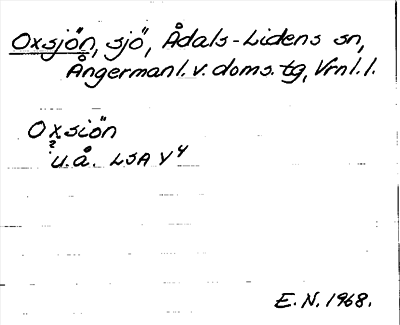 Oxsjön, sjö, Ådals-Lidens sn,
Ångermanl. v. doms. tg, Vrnl. l.
Oxsiön
? u.å. LSA Y4
E. N. 1968.